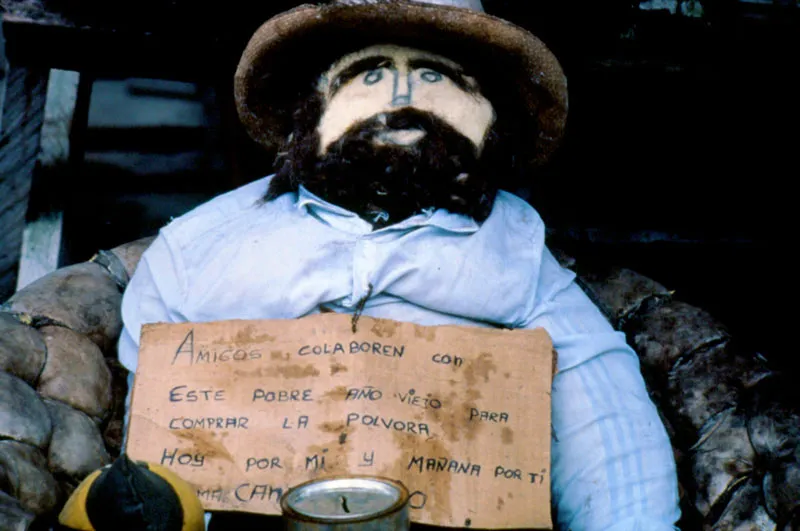 AMIGOS COLABOREN con
ESTE POBRE AÑO VIEJO PARA
COMPRAR LA POLVORA
HOY POR MI Y MAÑANA POR TI